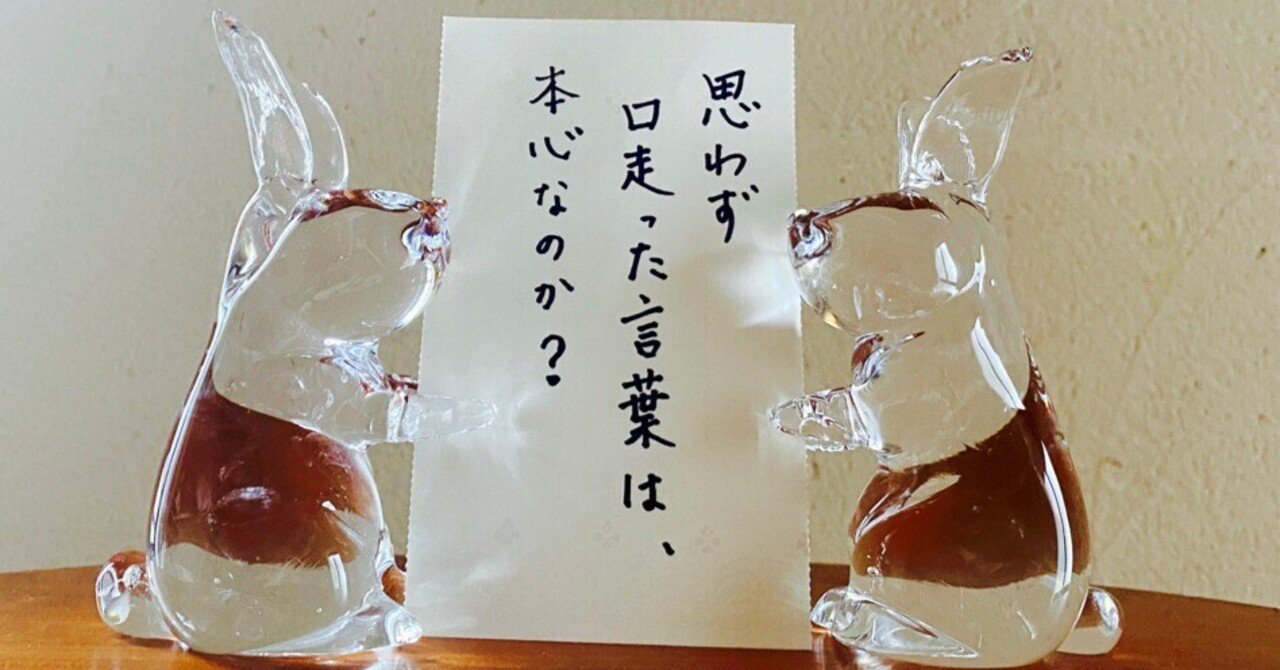 思わず
口走った言葉は、
本心なのか?